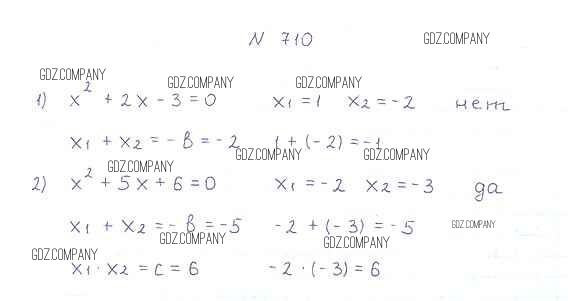 N 710
GDZ.COMPANY
GDZ.COMPANY
GDZ.COMPANY GDZ.COMPANY
1) x² + 2x - 3 = 0 x₁ = 1 x₂ = -2 нет
x₁ + x₂ = -в = -2 1 + (-2) = -1
GDZ.COMPANY GDZ.COMPANY
GDZ.COMPANY
2) x² + 5x + 6 = 0 x₁ = -2 x₂ = -3 да
x₁ + x₂ = -в = -5 -2 + (-3) = -5 GDZ.COMPANY
GDZ.COMPANY GDZ.COMPANY
GDZ.COMPANY
x₁ · x₂ = c = 6 -2 · (-3) = 6